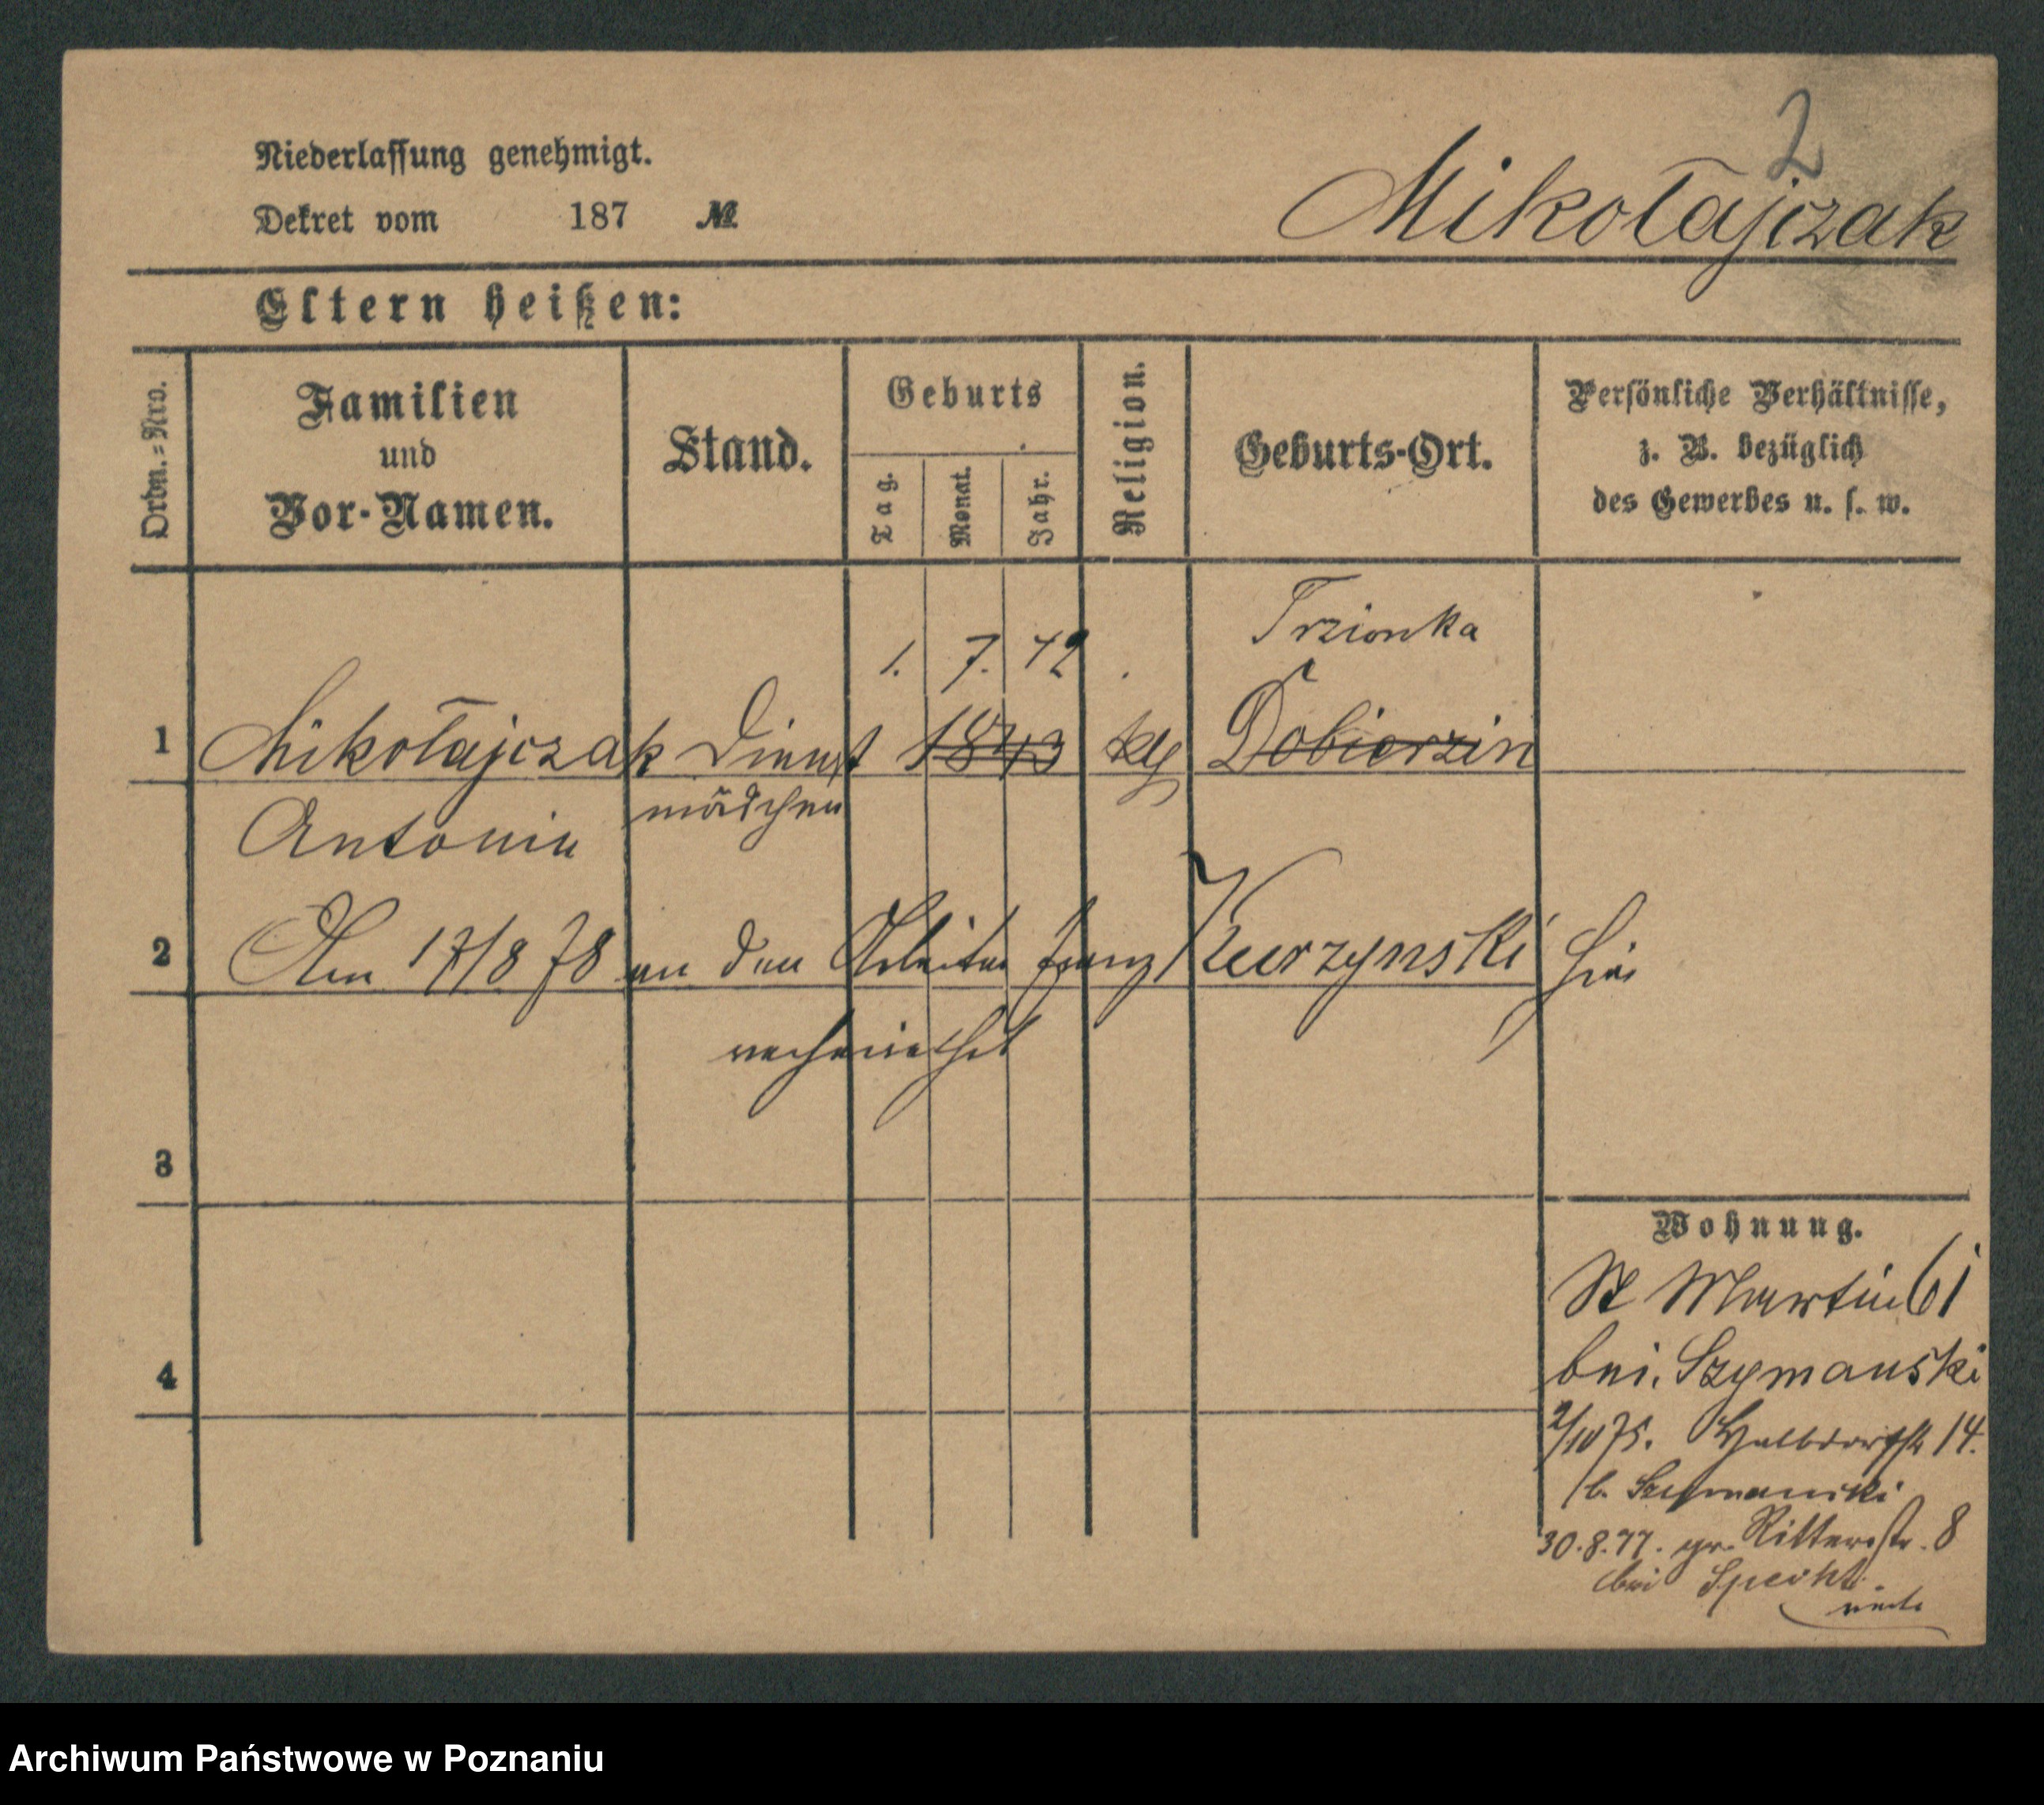 2
Niederlassung genehmigt.
Dekret vom 187 №
Mikołajczak
Eltern heißen:
Ordn.=Nro.
Familien
und
Vor-Namen.
Stand.
Geburts
Tag.
Monat.
Jahr.
Religion.
Geburts-Ort.
Persönliche Verhältnisse,
z. B. bezüglich
des Gewerbes u. s. w.
1. 7. 42 Trzionka
1 Mikołajczak Dienst 1843 Dobierzin
mädchen
Antonia
2 Am 17/8 78 an den Arbeiter Franz Kurzynski hier
verheirathet
3
Wohnung.
St Martin 61
4
bei. Szymanski
2/10 75. Halbdorfstr 14.
b. Szymanski
30.8.77. gr. Ritterstr. 8
bei Specht
Archiwum Państwowe w Poznaniu